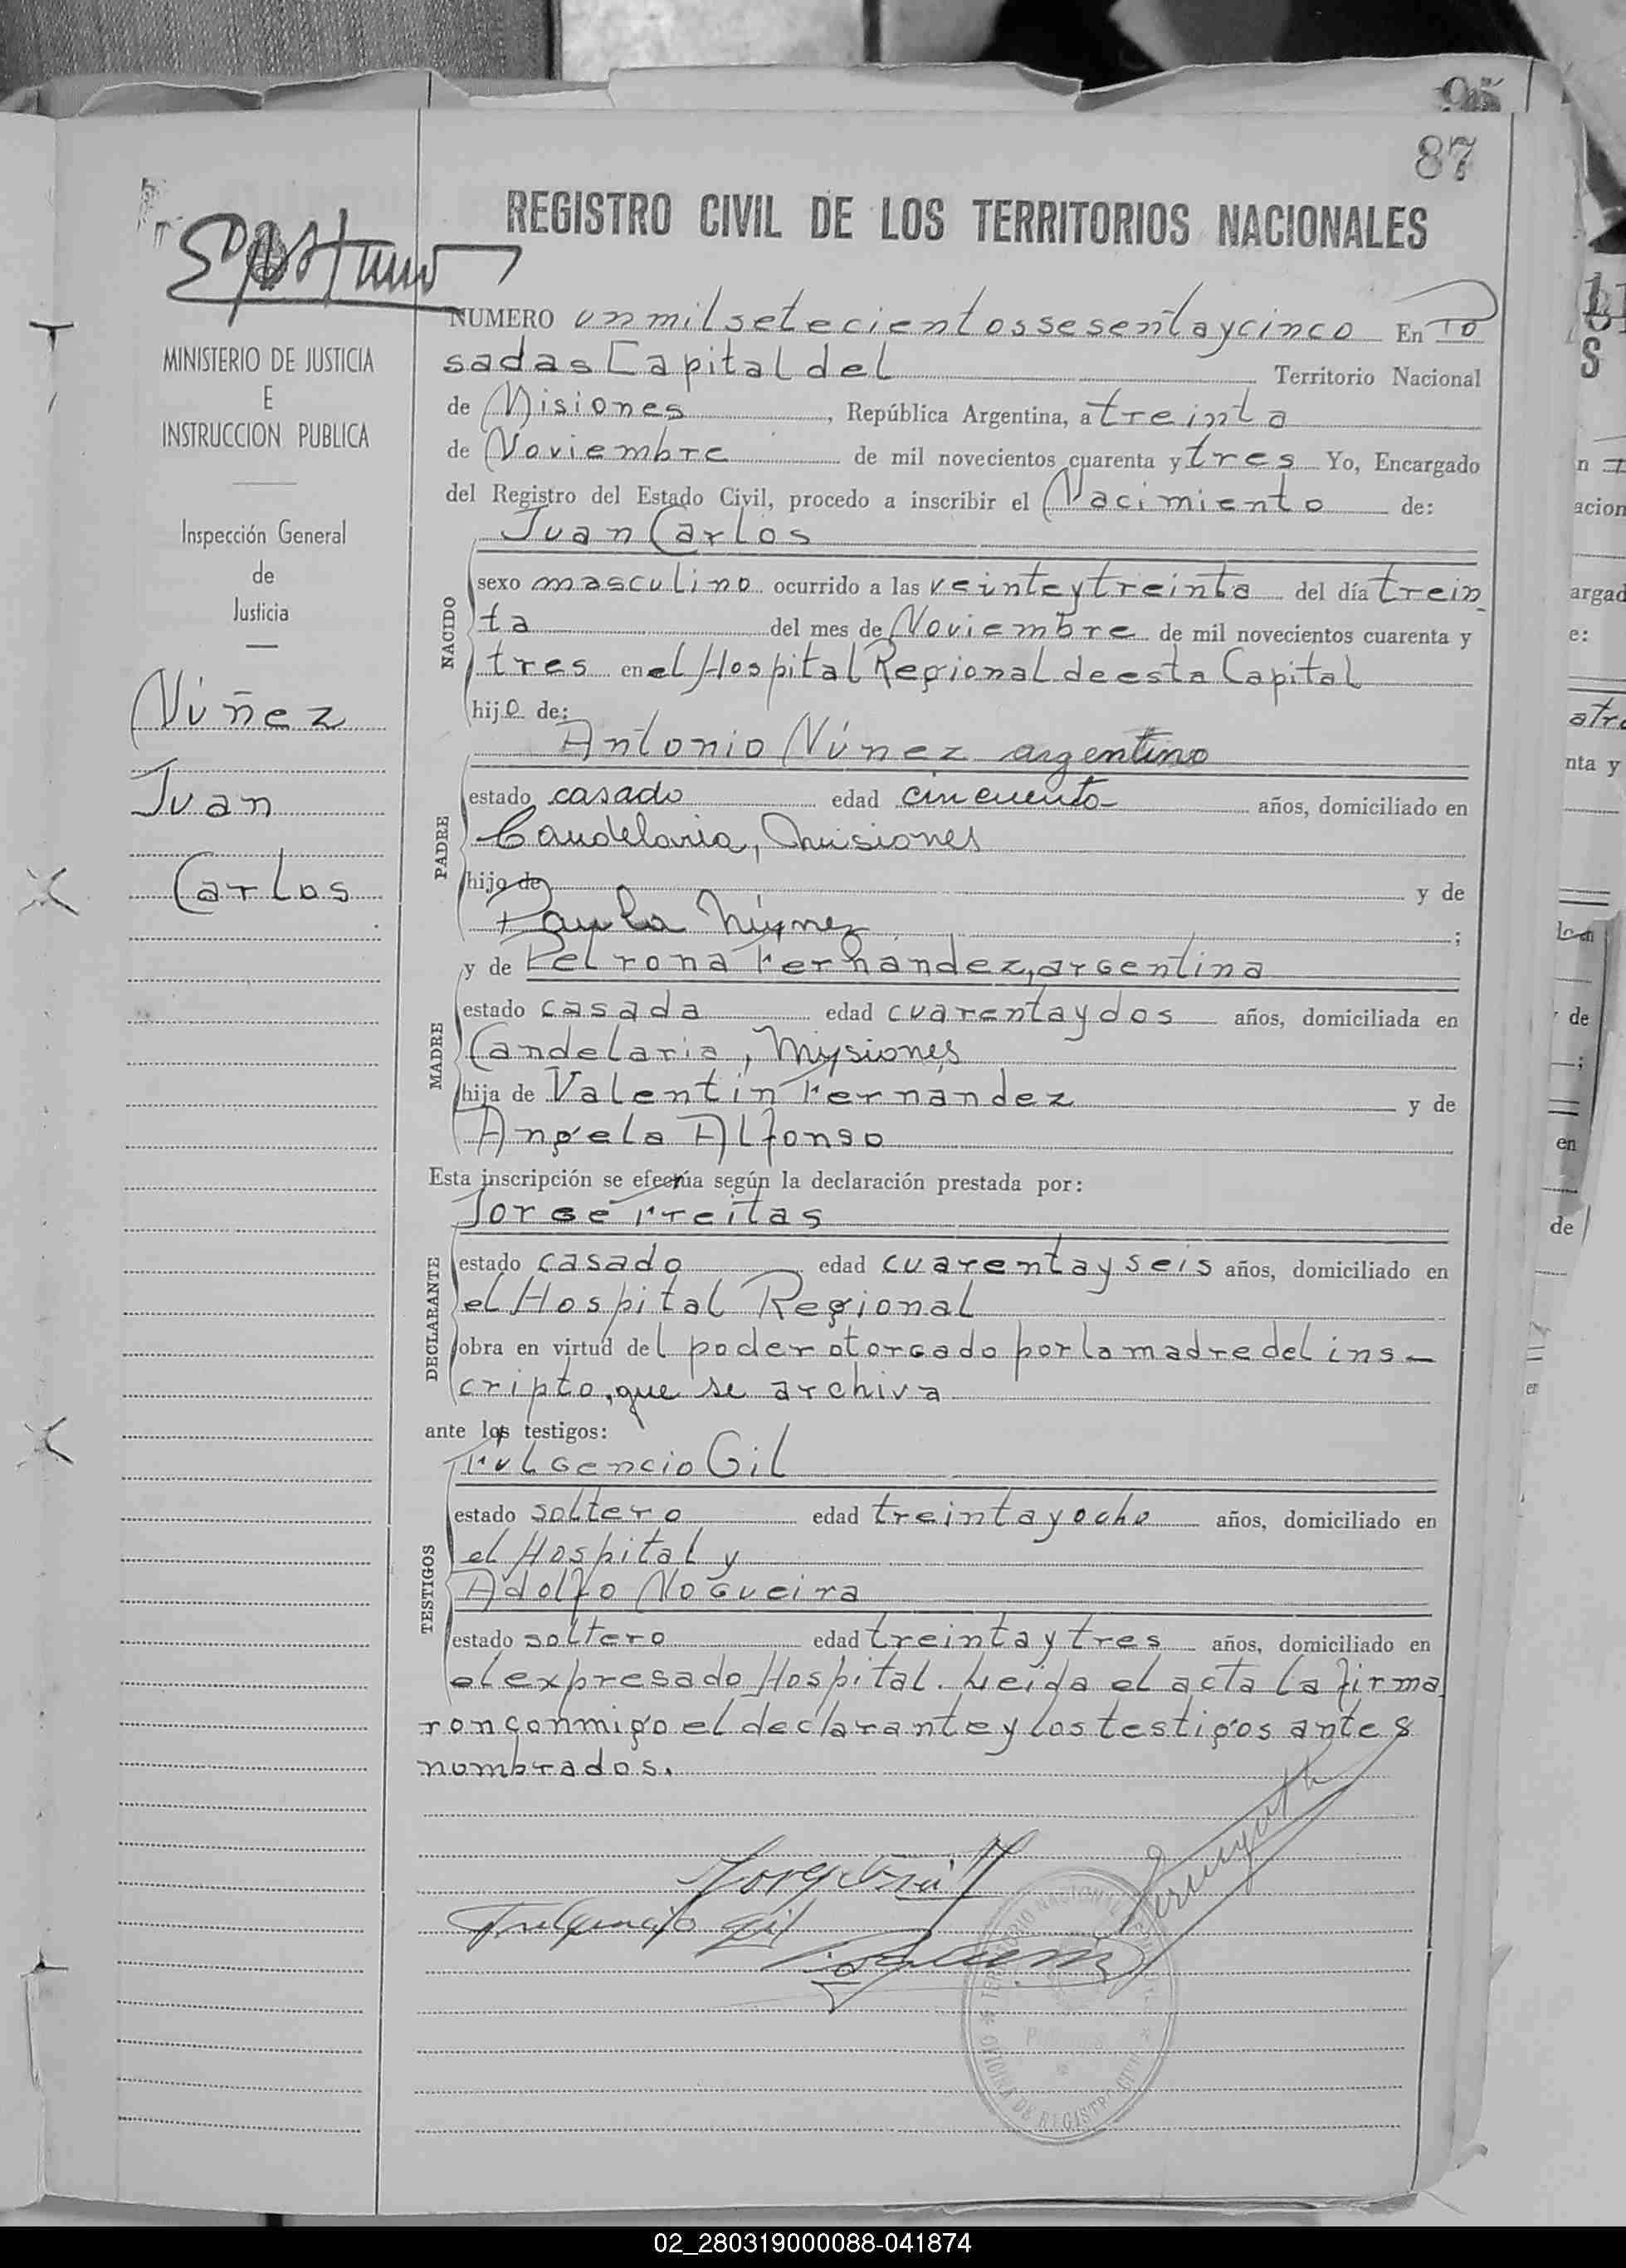 95
87
REGISTRO CIVIL DE LOS TERRITORIOS NACIONALES
MINISTERIO DE JUSTICIA
E
INSTRUCCION PUBLICA
Inspección General
de
Justicia
Núñez
Juan
Carlos
NUMERO un mil setecientos sesenta y cinco En Po
sadas Capital del Territorio Nacional
de Misiones, República Argentina, a treinta
de Noviembre de mil novecientos cuarenta y tres Yo, Encargado
del Registro del Estado Civil, procedo a inscribir el Nacimiento de:
Juan Carlos
NACIDO
sexo masculino ocurrido a las veinte y treinta del día trein
ta del mes de Noviembre de mil novecientos cuarenta y
tres en el Hospital Regional de esta Capital
hijo de:
Antonio Núnez argentino
PADRE
estado casado edad cincuenta años, domiciliado en
Candelaria, Misiones
hijo de y de
Paula Núnez ;
y de Petrona Fernandez, argentina
MADRE
estado casada edad cuarenta y dos años, domiciliada en
Candelaria, Mysiones
hija de Valentin Fernandez y de
Angela Alfonso
Esta inscripción se efectúa según la declaración prestada por:
Jorge Freitas
DECLARANTE
estado casado edad cuarenta y seis años, domiciliado en
el Hospital Regional
obra en virtud del poder otorgado por la madre del ins-
cripto, que se archiva
ante los testigos:
Fulgencio Gil
TESTIGOS
estado soltero edad treinta y ocho años, domiciliado en
el Hospital y
Adolfo Nogueira
estado soltero edad treinta y tres años, domiciliado en
el expresado Hospital. Leida el acta la firma
ron conmigo el declarante y los testigos antes
nombrados.
Fulgencio Gil
OFICINA DE REGISTRO CIVIL
02_280319000088-041874